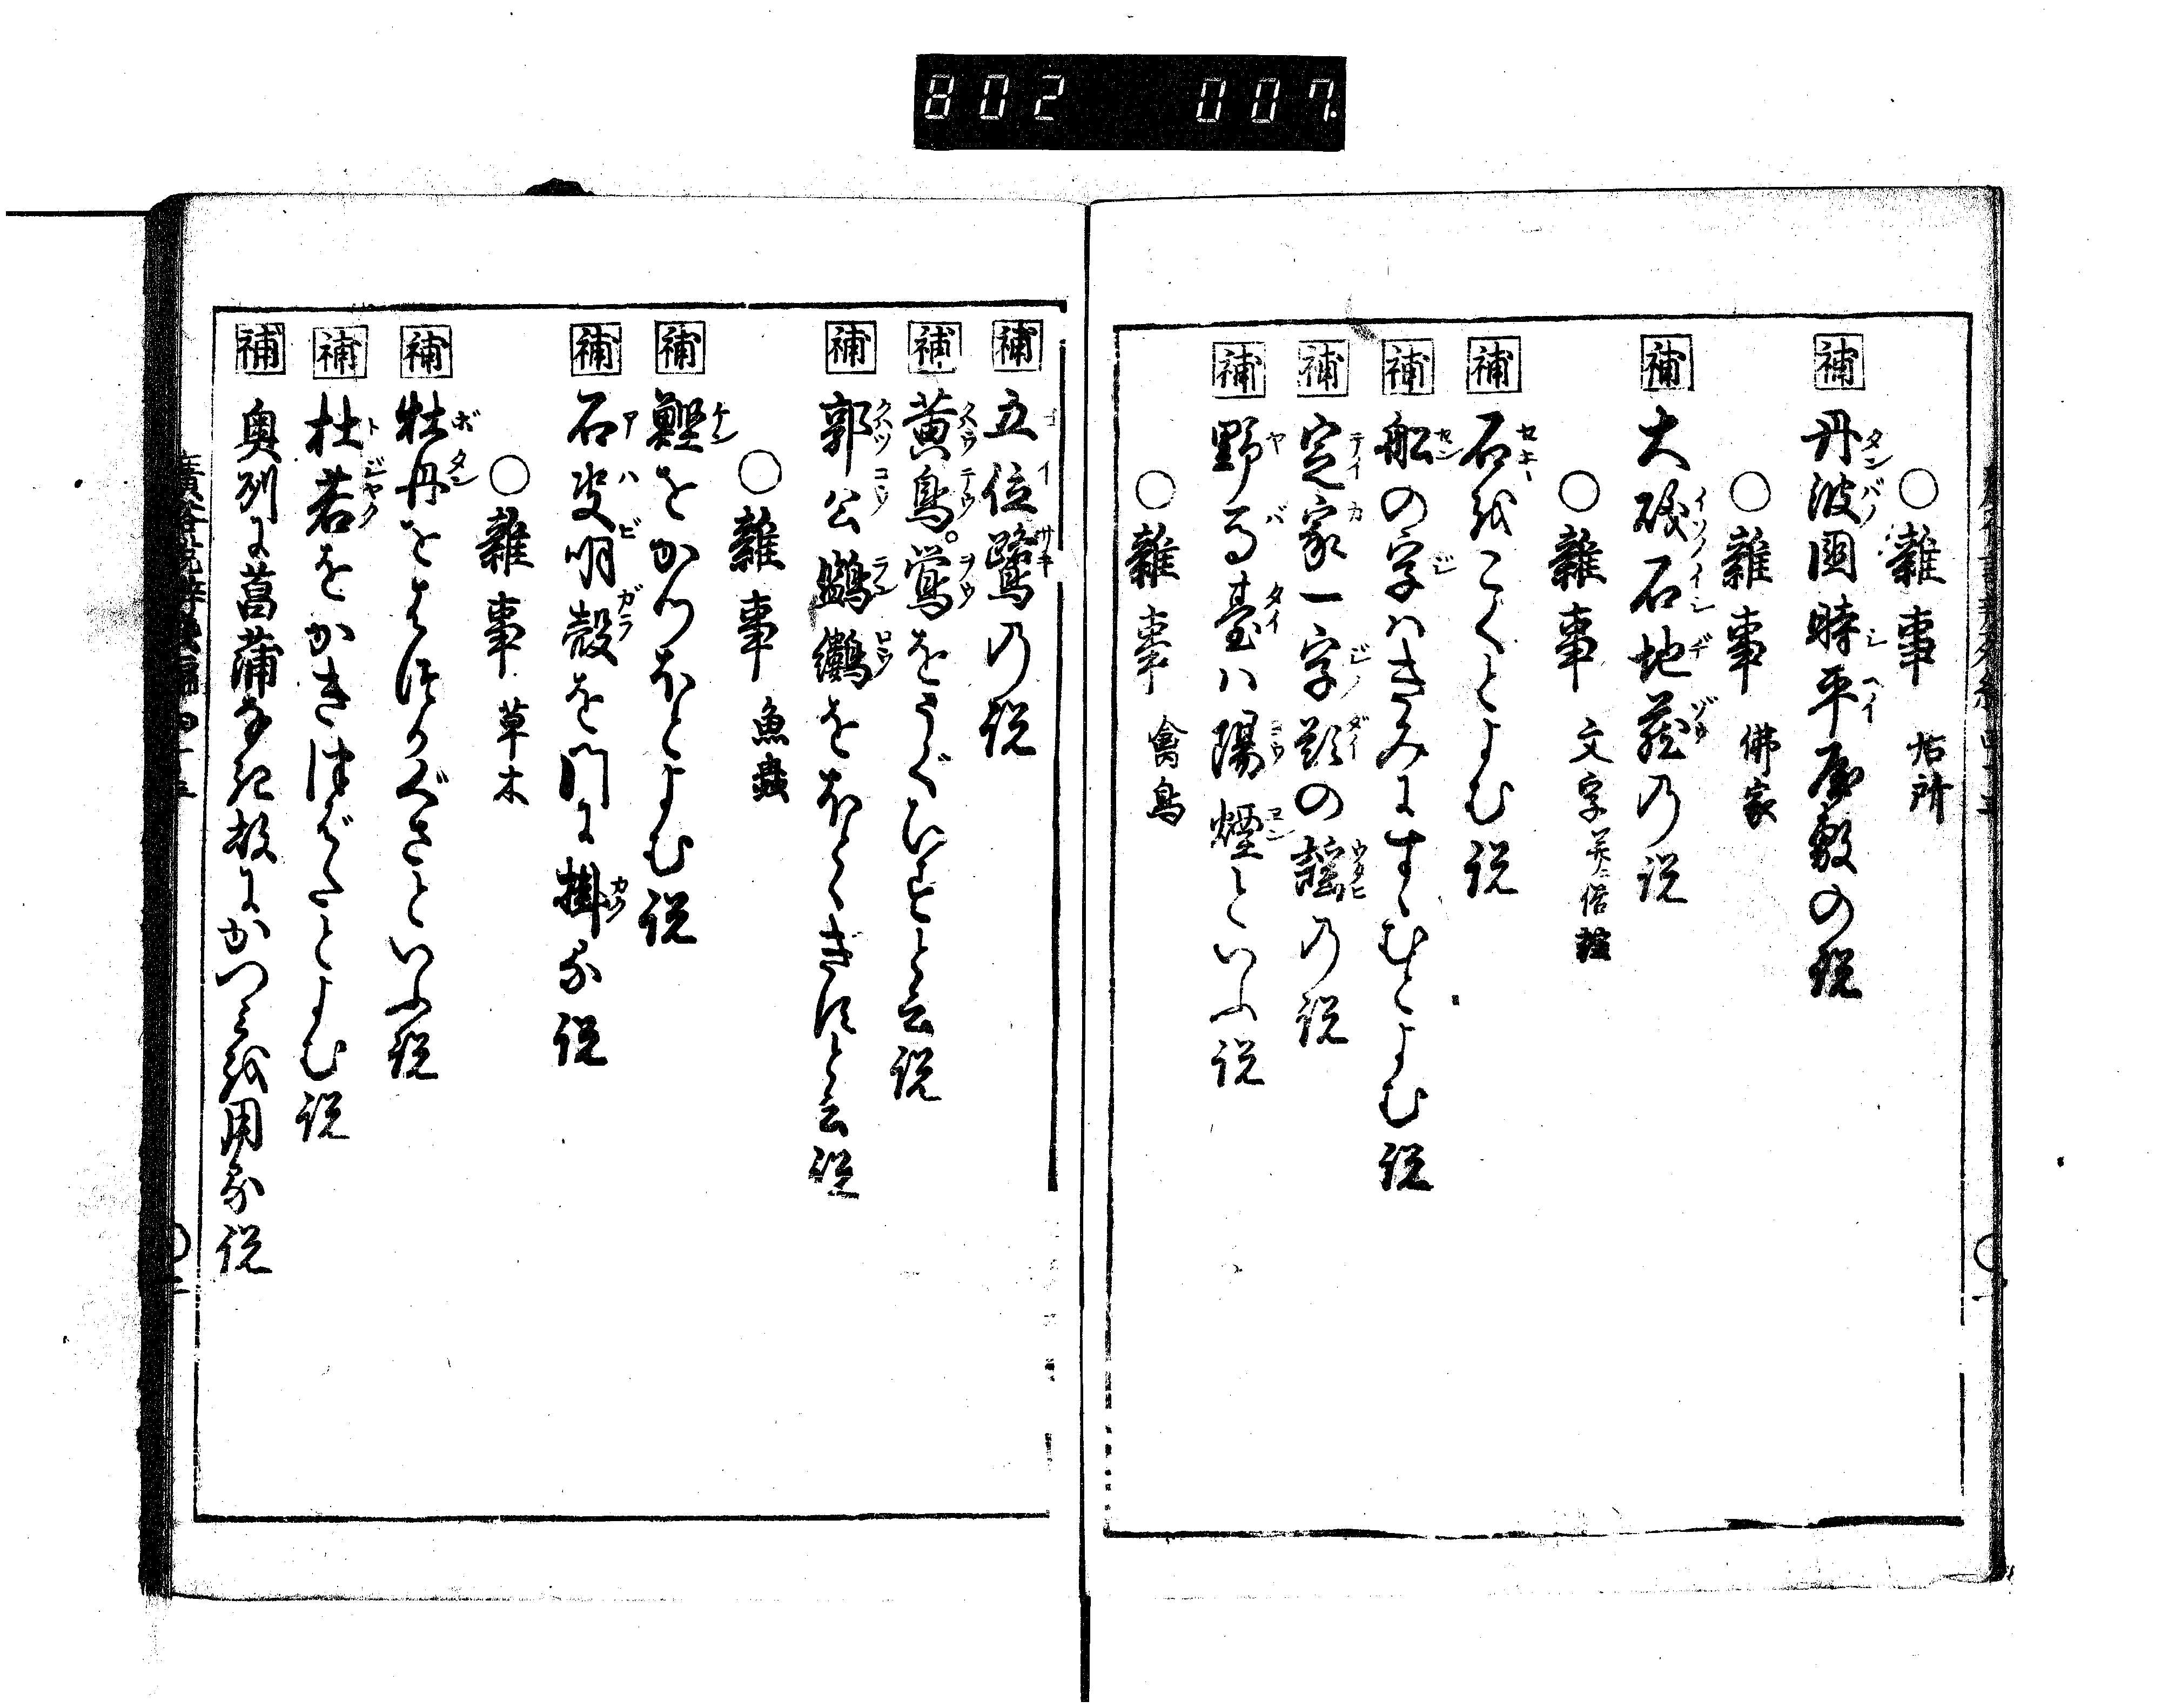 802 007.
○雜事 名所
補 丹波國時平屋敷の説
○雜事 佛家
補 大磯石地蔵の説
○雜事 文字
補 石をこくとよむ説
補 船の字ハきみにすゝむとよむ説
補 定家一字題の謡の説
補 野馬臺ハ陽煙といふ説
○雜事 禽鳥
補 五位鷺の説
補 黄鳥。鶯をうぐひすと云説
補 郭公鷝をほとゝぎすと云説
○雜事 魚蟲
補 鰹をかつおとよむ説
補 石决明殻を門に掛る説
○雜事 草木
補 牡丹をはつかぐさといふ説
補 杜若をかきつばたとよむ説
補 奥列に菖蒲なき故にかつみを用る説